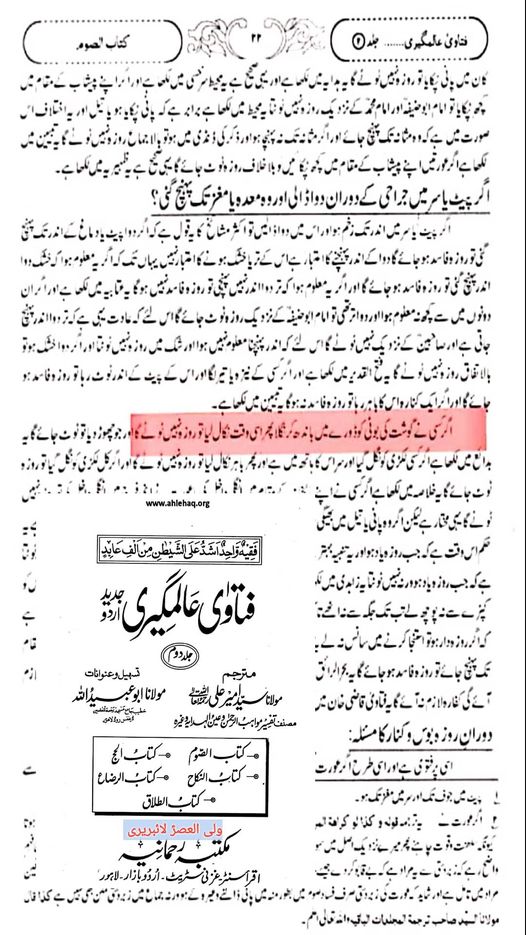 فتاویٰ عالمگیری ...... جلد ۲
۲۲
کتاب الصوم
کان میں پانی ٹپکایا تو روزہ نہیں ٹوٹے گا یہ ہدایہ میں لکھا ہے اور یہی صحیح ہے یہ محیط سرخسی میں لکھا ہے اور اگر اپنے پیشاب کے مقام میں
کچھ ٹپکایا تو امام ابو حنیفہ اور امام محمد کے نزدیک روزہ نہیں ٹوٹتا یہ محیط میں لکھا ہے برابر ہے کہ پانی ٹپکایا ہو یا تیل اور یہ اختلاف اس
صورت میں ہے کہ وہ مثانہ تک پہنچ جائے اور اگر مثانہ تک نہ پہنچا ہو اور ذکر کی ڈنڈی میں ہو تو بالاجماع روزہ نہ ٹوٹے گا یہ تبیین میں
لکھا ہے اگر عورتیں اپنے پیشاب کے مقام میں کچھ ٹپکائیں تو بلا خلاف روزہ ٹوٹ جائے گا یہی صحیح ہے یہ ظہیریہ میں لکھا ہے۔
اگر پیٹ یا سر میں جراحی کے دوران دوا ڈالی اور وہ معدہ یا مغز تک پہنچ گئی؟
اگر پیٹ یا سر میں اندر تک زخم ہو اور اس میں دوا ڈالیں تو اکثر مشائخ کا یہ قول ہے کہ اگر دوا پیٹ یا دماغ کے اندر تک پہنچ
گئی تو روزہ فاسد ہو جائے گا دوا کے اندر پہنچنے کا اعتبار ہے اس کے تر یا خشک ہونے کا اعتبار نہیں یہاں تک کہ اگر یہ معلوم ہوا کہ خشک دوا
اندر پہنچ گئی تو روزہ فاسد ہو جائے گا اور اگر یہ معلوم ہوا کہ تر دوا اندر نہیں پہنچی تو روزہ فاسد نہیں ہو گا یہ عنایہ میں لکھا ہے اور اگر ان
دونوں میں سے کچھ نہ معلوم ہوا اور دوا تر تھی تو امام ابو حنیفہ کے نزدیک روزہ ٹوٹ جائے گا اس لئے کہ عادت یہی ہے کہ تر دوا اندر پہنچ
جاتی ہے اور صاحبین کے نزدیک نہیں ٹوٹے گا اس لئے کہ اندر پہنچنا معلوم نہیں ہوا اور شک میں روزہ نہیں ٹوٹتا اور اگر دوا خشک ہو تو
بالاتفاق روزہ نہیں ٹوٹے گا یہ فتح القدیر میں لکھا ہے اور اگر کسی کے نیزہ یا تیر لگا اور اس کے پیٹ کے اندر ٹوٹ رہا تو روزہ فاسد ہو
جائے گا اور اگر ایک کنارہ اس کا باہر رہا تو روزہ فاسد نہ ہو گا یہ تبیین میں لکھا ہے۔
اگر کسی نے گوشت کی بوٹی کو ڈورے میں باندھ کر نگلا پھر اسی وقت نکال لیا تو روزہ نہیں ٹوٹے گا اور جو چھوڑ دیا تو ٹوٹ جائے گا یہ
بدائع میں لکھا ہے اگر کسی لکڑی کو نگل گیا اور سرا اس کا ہاتھ میں ہے اور پھر باہر نکال لیا تو روزہ نہیں ٹوٹے گا اور اگر کل لکڑی کو نگل گیا تو روزہ
ٹوٹ جائے گا یہ خلاصہ میں لکھا ہے اگر کسی نے اپنے
ٹوٹے گا یہی مختار ہے لیکن اگر وہ پانی یا تیل میں بھیگی
حکم اس وقت ہے کہ جب روزہ یاد ہو اور یہ تنبیہ بہتر
ہے کہ جب روزہ یاد ہو ورنہ نہیں ٹوٹتا یہ زاہدی میں لکھا
کپڑے سے نہ پونچھ لے تب تک جگہ سے نہ اٹھے تا
کہ اگر روزہ دار ہو تو استنجا کرنے میں سانس نہ لے یا
جائے گا تو روزہ فاسد ہو جائے گا یہ بحر الرائق
آئے گی کفارہ لازم نہ آئے گا یہ فتاویٰ قاضی خان میں
دوران روزہ بوس و کنار کا مسئلہ:
اسی پر فتویٰ ہے اور اسی طرح اگر عورت
پیٹ میں جوف تک اور سر میں مغز تک ہو۔
www.ahlehaq.org
فقیه واحد اشد علی الشیطن من الف عابد
فتاویٰ عالمگیری
جدید اردو
جلد دوم
مترجم
مولانا سید امیر علی رحمۃ اللہ علیہ
مصنف تفسیر مواہب الرحمٰن و عین الہدایہ وغیرہ
تسہیل و عنوانات
مولانا ابو عبید اللہ
کتاب الصوم
کتاب الحج
کتاب النکاح
کتاب الرضاع
کتاب الطلاق
ولی العصرؑ لائبریری
مکتبہ رحمانیہ
اقراسنٹر غزنی سٹریٹ۔ اردو بازار۔ لاہور
مولانا السید صاحب ترجمۃ المجلدات الباقیہ واللہ تعالیٰ اعلم۔